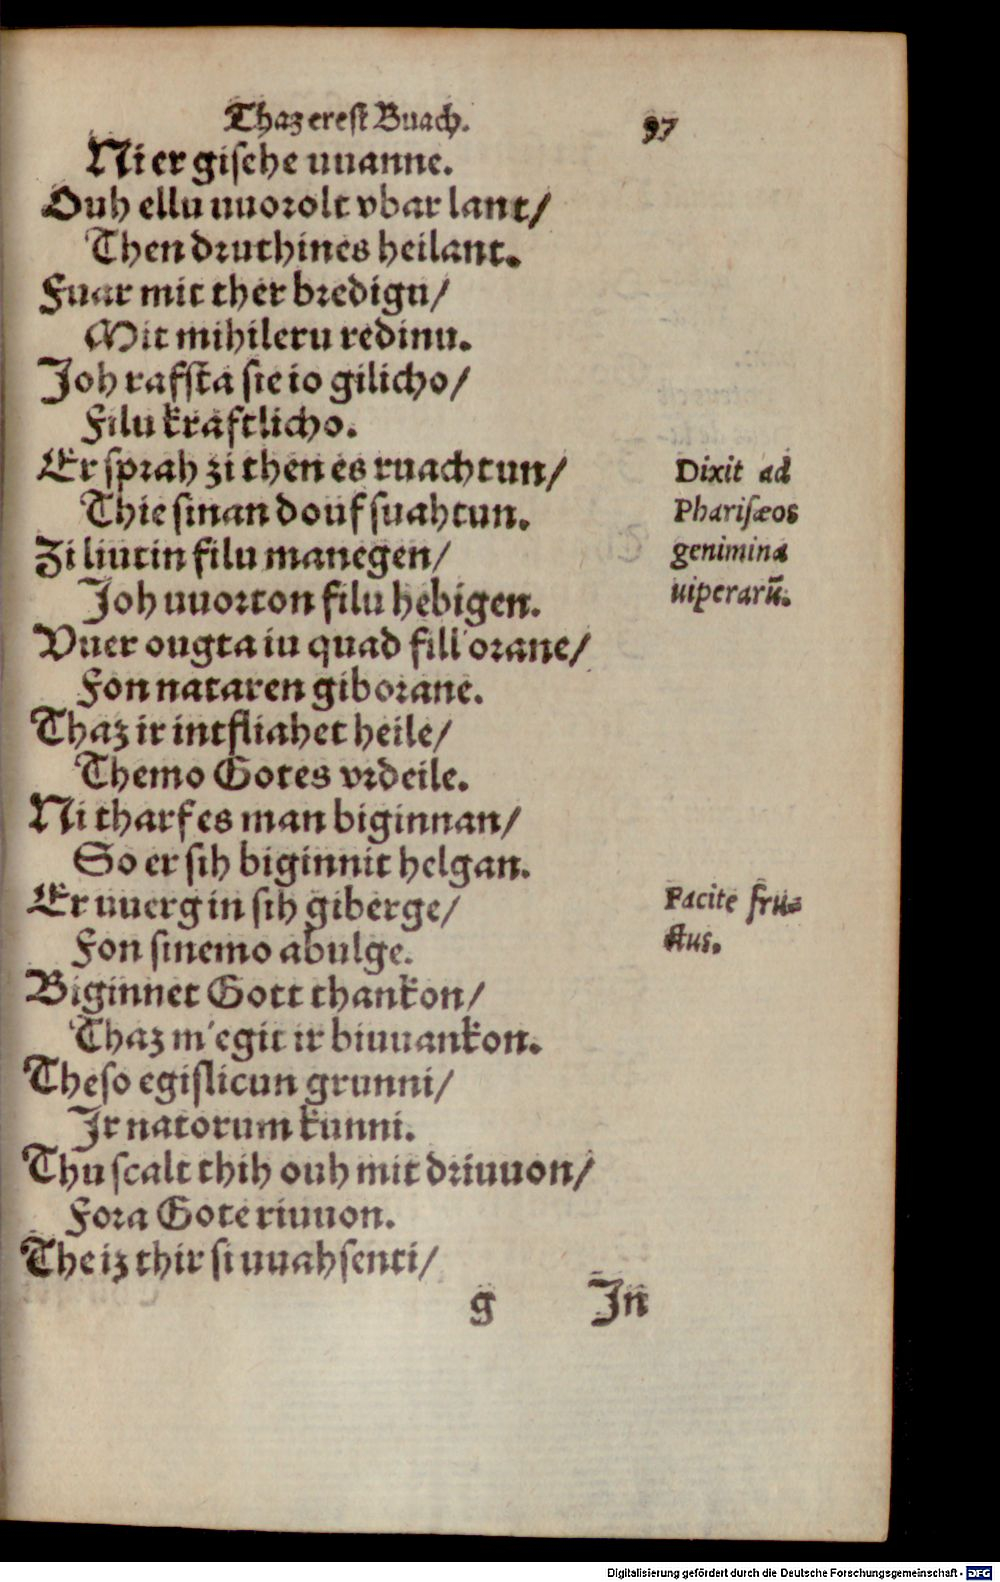 Thaz erest Buach. 97
Ni er gisehe uuanne.
Ouh ellu uuorolt vbar lant/
Then druthines heilant.
Fuar mit ther bredigu/
Mit mihileru redinu.
Joh rafsta sie io gilicho/
Filu kraftlicho.
Er sprah zi then es ruachtun/
Thie sinan douf suahtun.
Zi liutin filu manegen/
Joh uuorton filu hebigen.
Vuer ougta iu quad fill'orane/
Fon nataren giborane.
Thaz ir intfliahet heile/
Themo Gotes vrdeile.
Ni tharf es man biginnan/
So er sih biginnit helgan.
Er uuergin sih giberge/
Fon sinemo abulge.
Biginnet Gott thankon/
Thaz m'egit ir biuuankon.
Theso egislicun grunni/
Jr natorum kunni.
Thu scalt thih ouh mit driuuon/
Fora Gote riuuon.
The iz thir si uuahsenti/
g Jn
Dixit ad
Pharisæos
genimina
uiperarū.
Facite fru-
ctus.
Digitalisierung gefördert durch die Deutsche Forschungsgemeinschaft - DFG